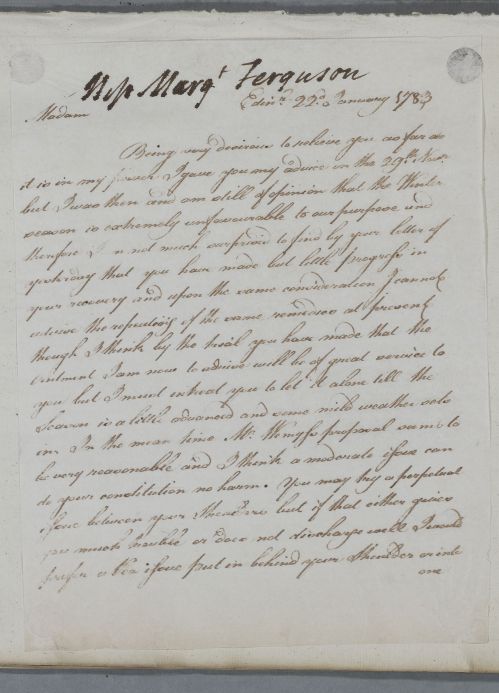 Miss Marg.t Ferguson
Edin.r 22.d January 1783
Madam
Being very desirous to relieve you as far as
it is in my power I gave you my advice on the 29.th Nov.r
but I was then and am still of opinion that the Winter
season is extremely unfavourable to our purpose and
therefore I m not much surprised to find by your letter of
yesterday that you have made but little progress in
your recovery and upon the same consideration I cannot
advise the repeating of the same remedies at present
though I think by the trial you have made that the
ointment I am now to advise will be of great service to
you but I must intreat you to let it alone till the
Season is a little advanced and some mild weather sets
in. In the mean time Mr. proposal seems to
be very reasonable and I think a moderate issue can
do your constitution no harm. You may try a perpetual
issue between your Shoulders but if that either gives
you much trouble or does not discharge well I would
prefer a Pea issue put in behind your Shoulder or into
one